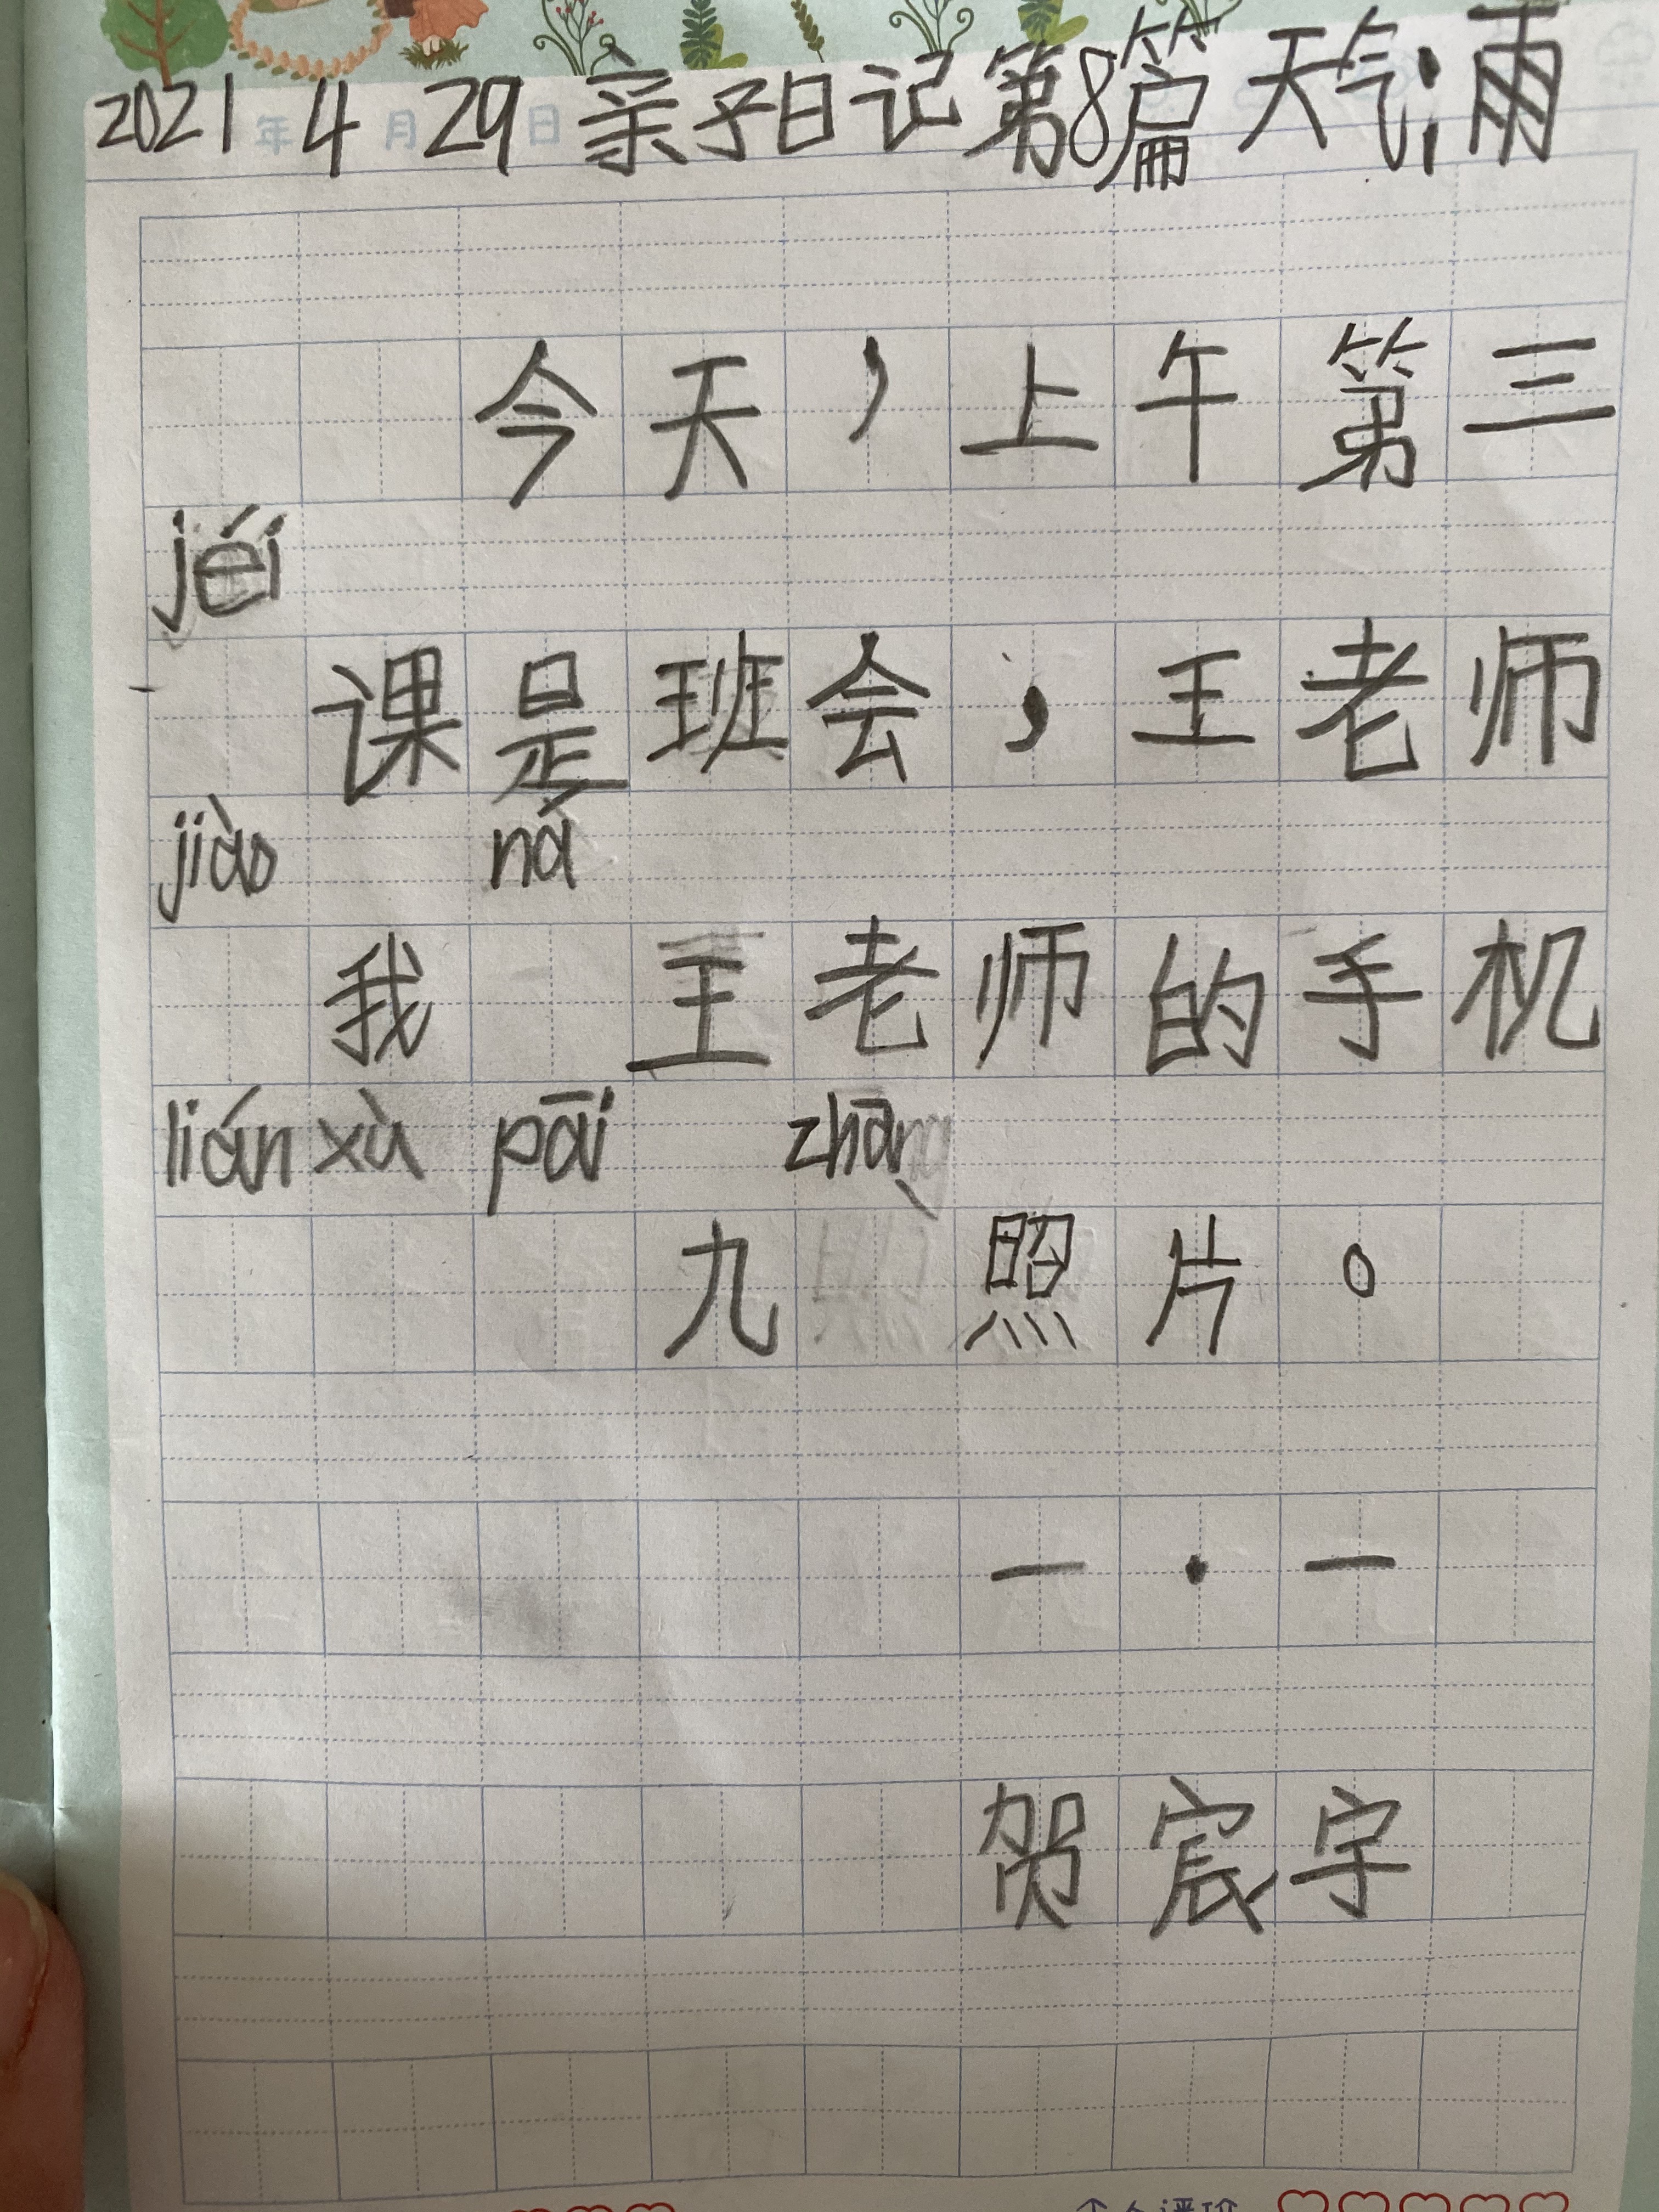 2021年4月29日 亲子日记第8篇 天气:雨
今天，上午第三
jéi
课是班会，王老师
jiào ná
我 王老师的手机
lián xù pāi zhāng
九 照片。
一·一
贺宸宇